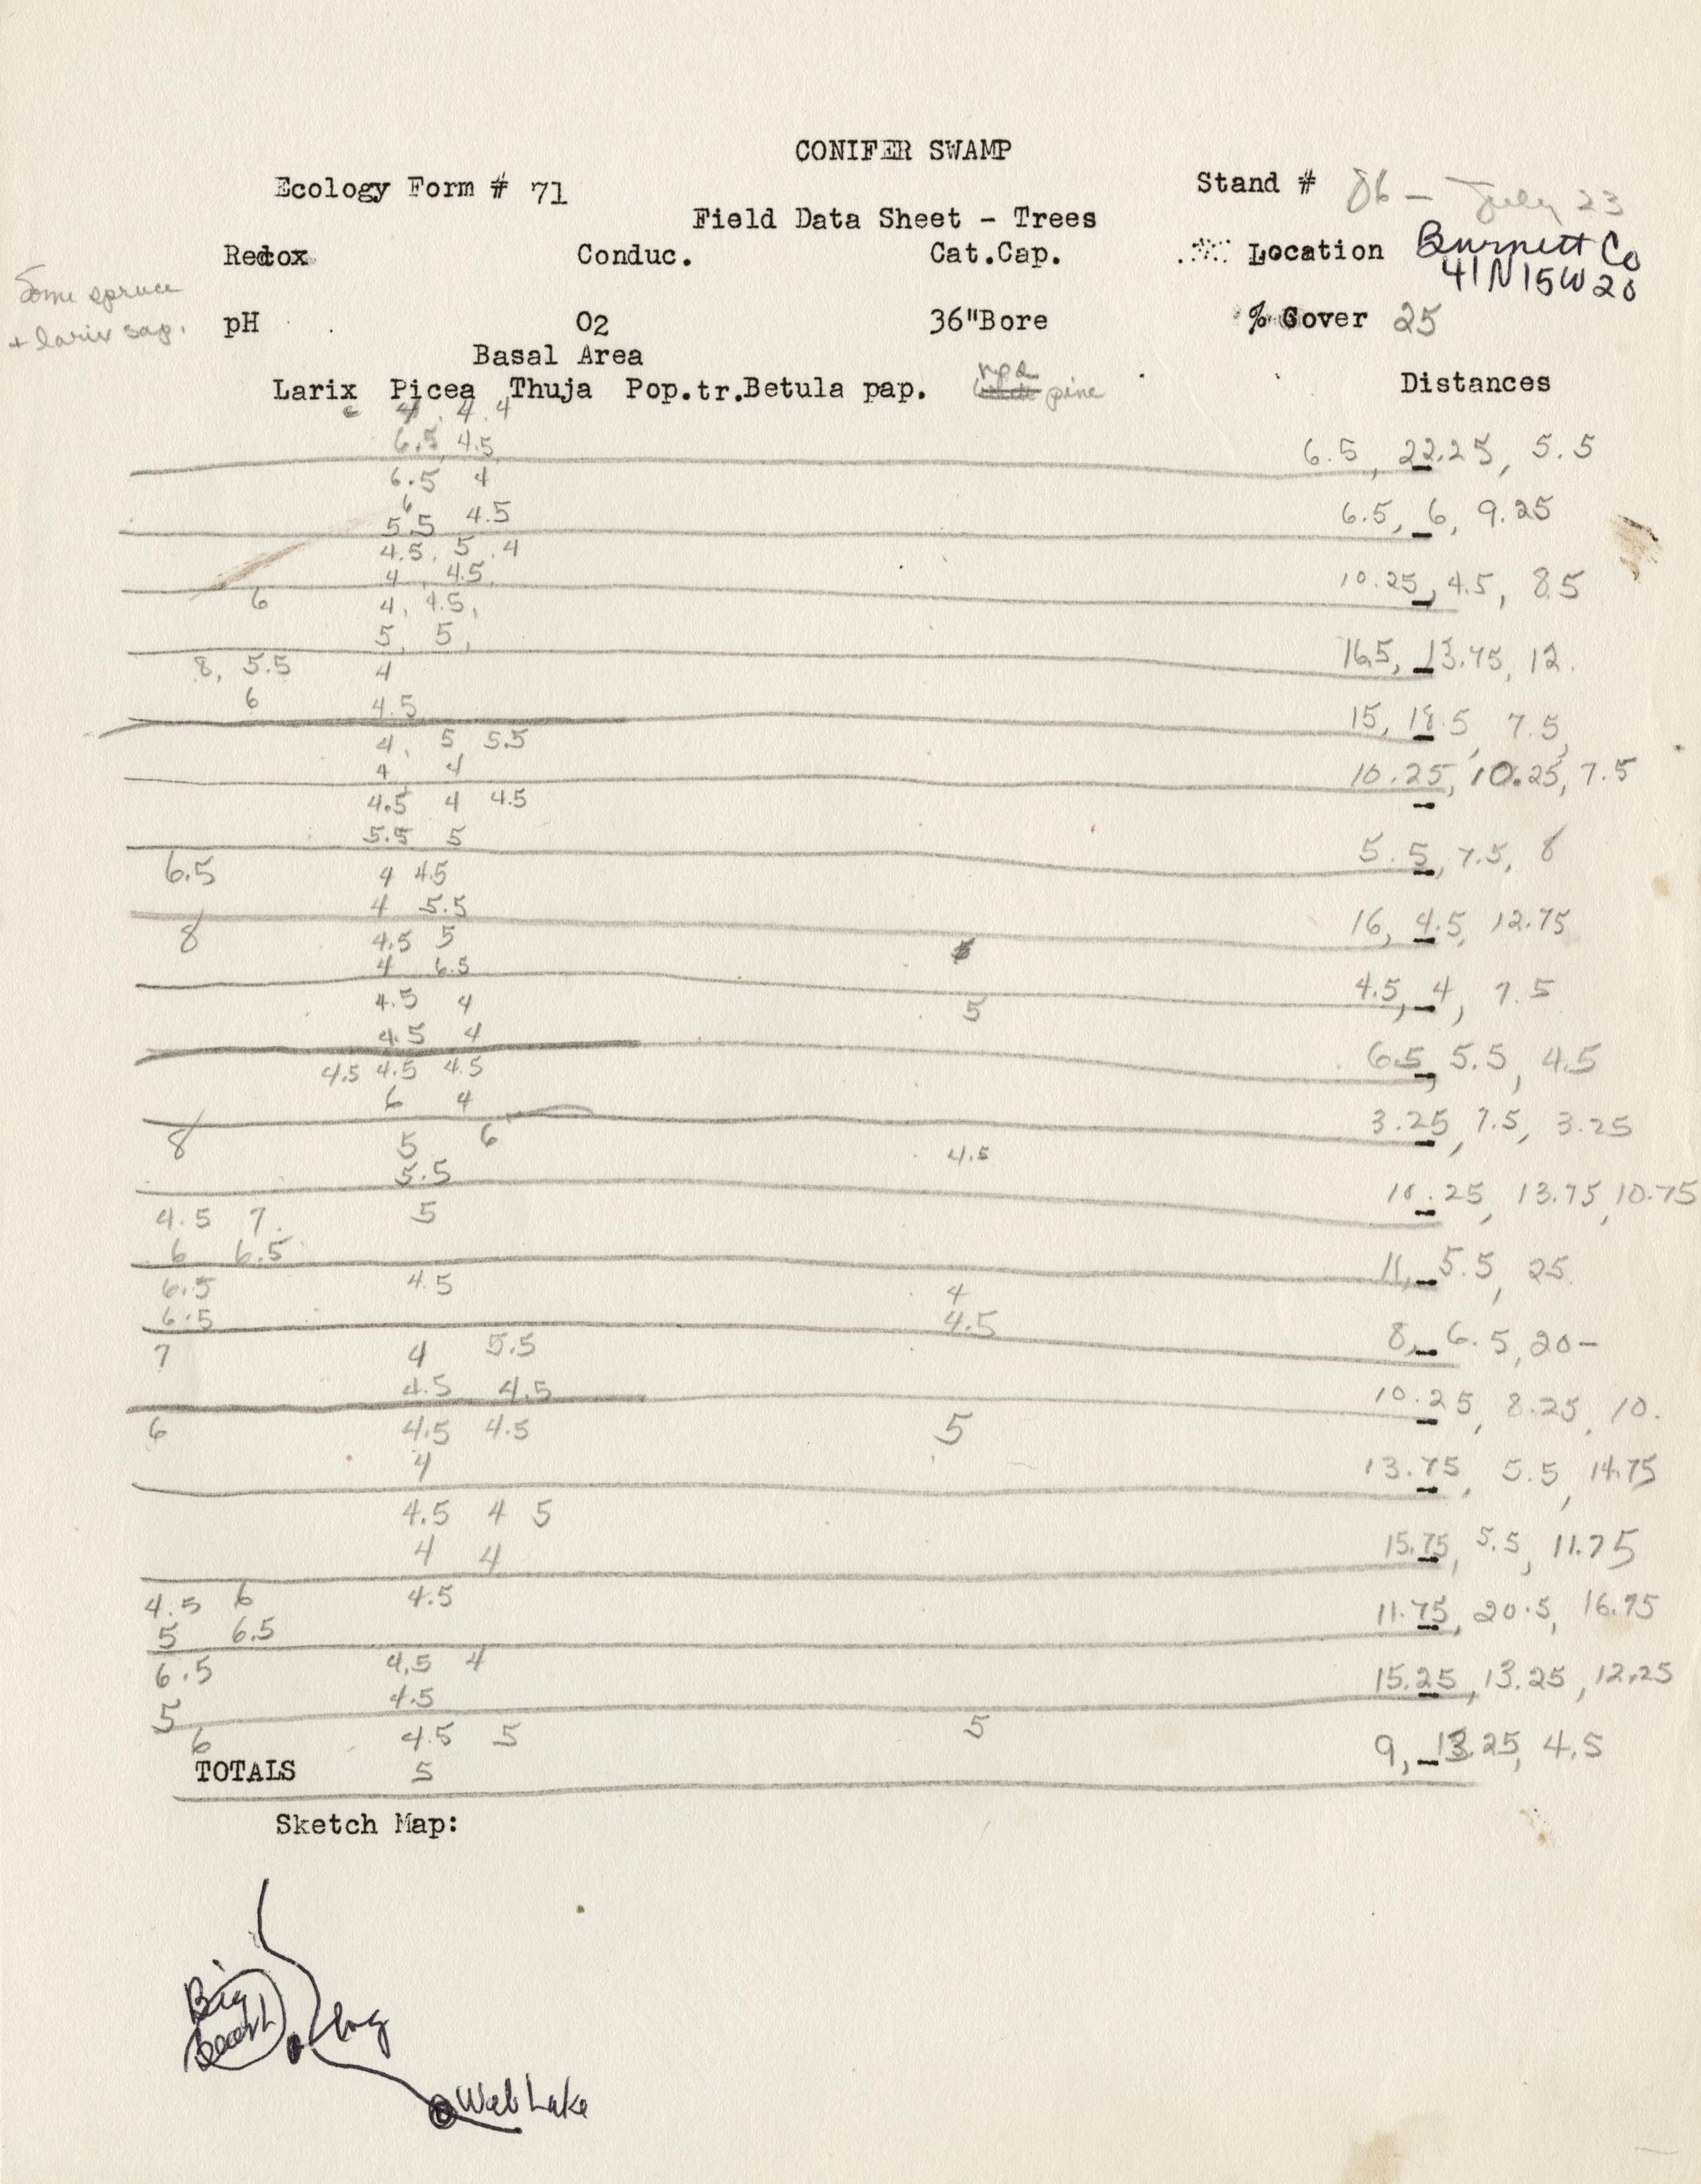 CONIFER SWAMP
Ecology Form # 71
Stand # 86 - July 23
Field Data Sheet - Trees
Redox Conduc. Cat.Cap. Location Burnett Co
41N15W20
Some spruce
+ larix sap.
pH O2 36"Bore % Cover 25
Basal Area
Larix Picea Thuja Pop.tr.Betula pap. red pine Distances
4 4 4
6.5 4.5 6.5, 22.25, 5.5
6.5 4
6
5.5 4.5 6.5, 6, 9.25
4.5, 5, 4
4, 4.5, 10.25, 4.5, 8.5
6 4, 4.5,
5, 5, 16.5, 13.75, 12.
8, 5.5 4
6 4.5 15, 18.5, 7.5,
4, 5 5.5
4 4 10.25, 10.25, 7.5
4.5 4 4.5
5.5 5 5.5, 7.5, 8
6.5 4 4.5
4 5.5 16, 4.5, 12.75
8 4.5 5
4 6.5 4.5, 4, 7.5
4.5 4 5
4.5 4 6.5, 5.5, 4.5
4.5 4.5 4.5
6 4 3.25, 7.5, 3.25
8 5 6 4.5
5.5 .25, 13.75, 10.75
4.5 7. 5
6 6.5 11, 5.5, 25.
6.5 4.5 4
6.5 4.5 8, 6.5, 20-
7 4 5.5
4.5 4.5 10.25, 8.25, 10.
6 4.5 4.5 5
4 13.75, 5.5, 14.75
4.5 4 5
4 4 15.75, 5.5, 11.75
4.5 6 4.5
5 6.5 11.75, 20.5, 16.75
6.5 4.5 4
5 4.5 15.25, 13.25, 12.25
6 4.5 5 5
TOTALS 5 9, 13.25, 4.5
Sketch Map:
Big
bog
Web Lake